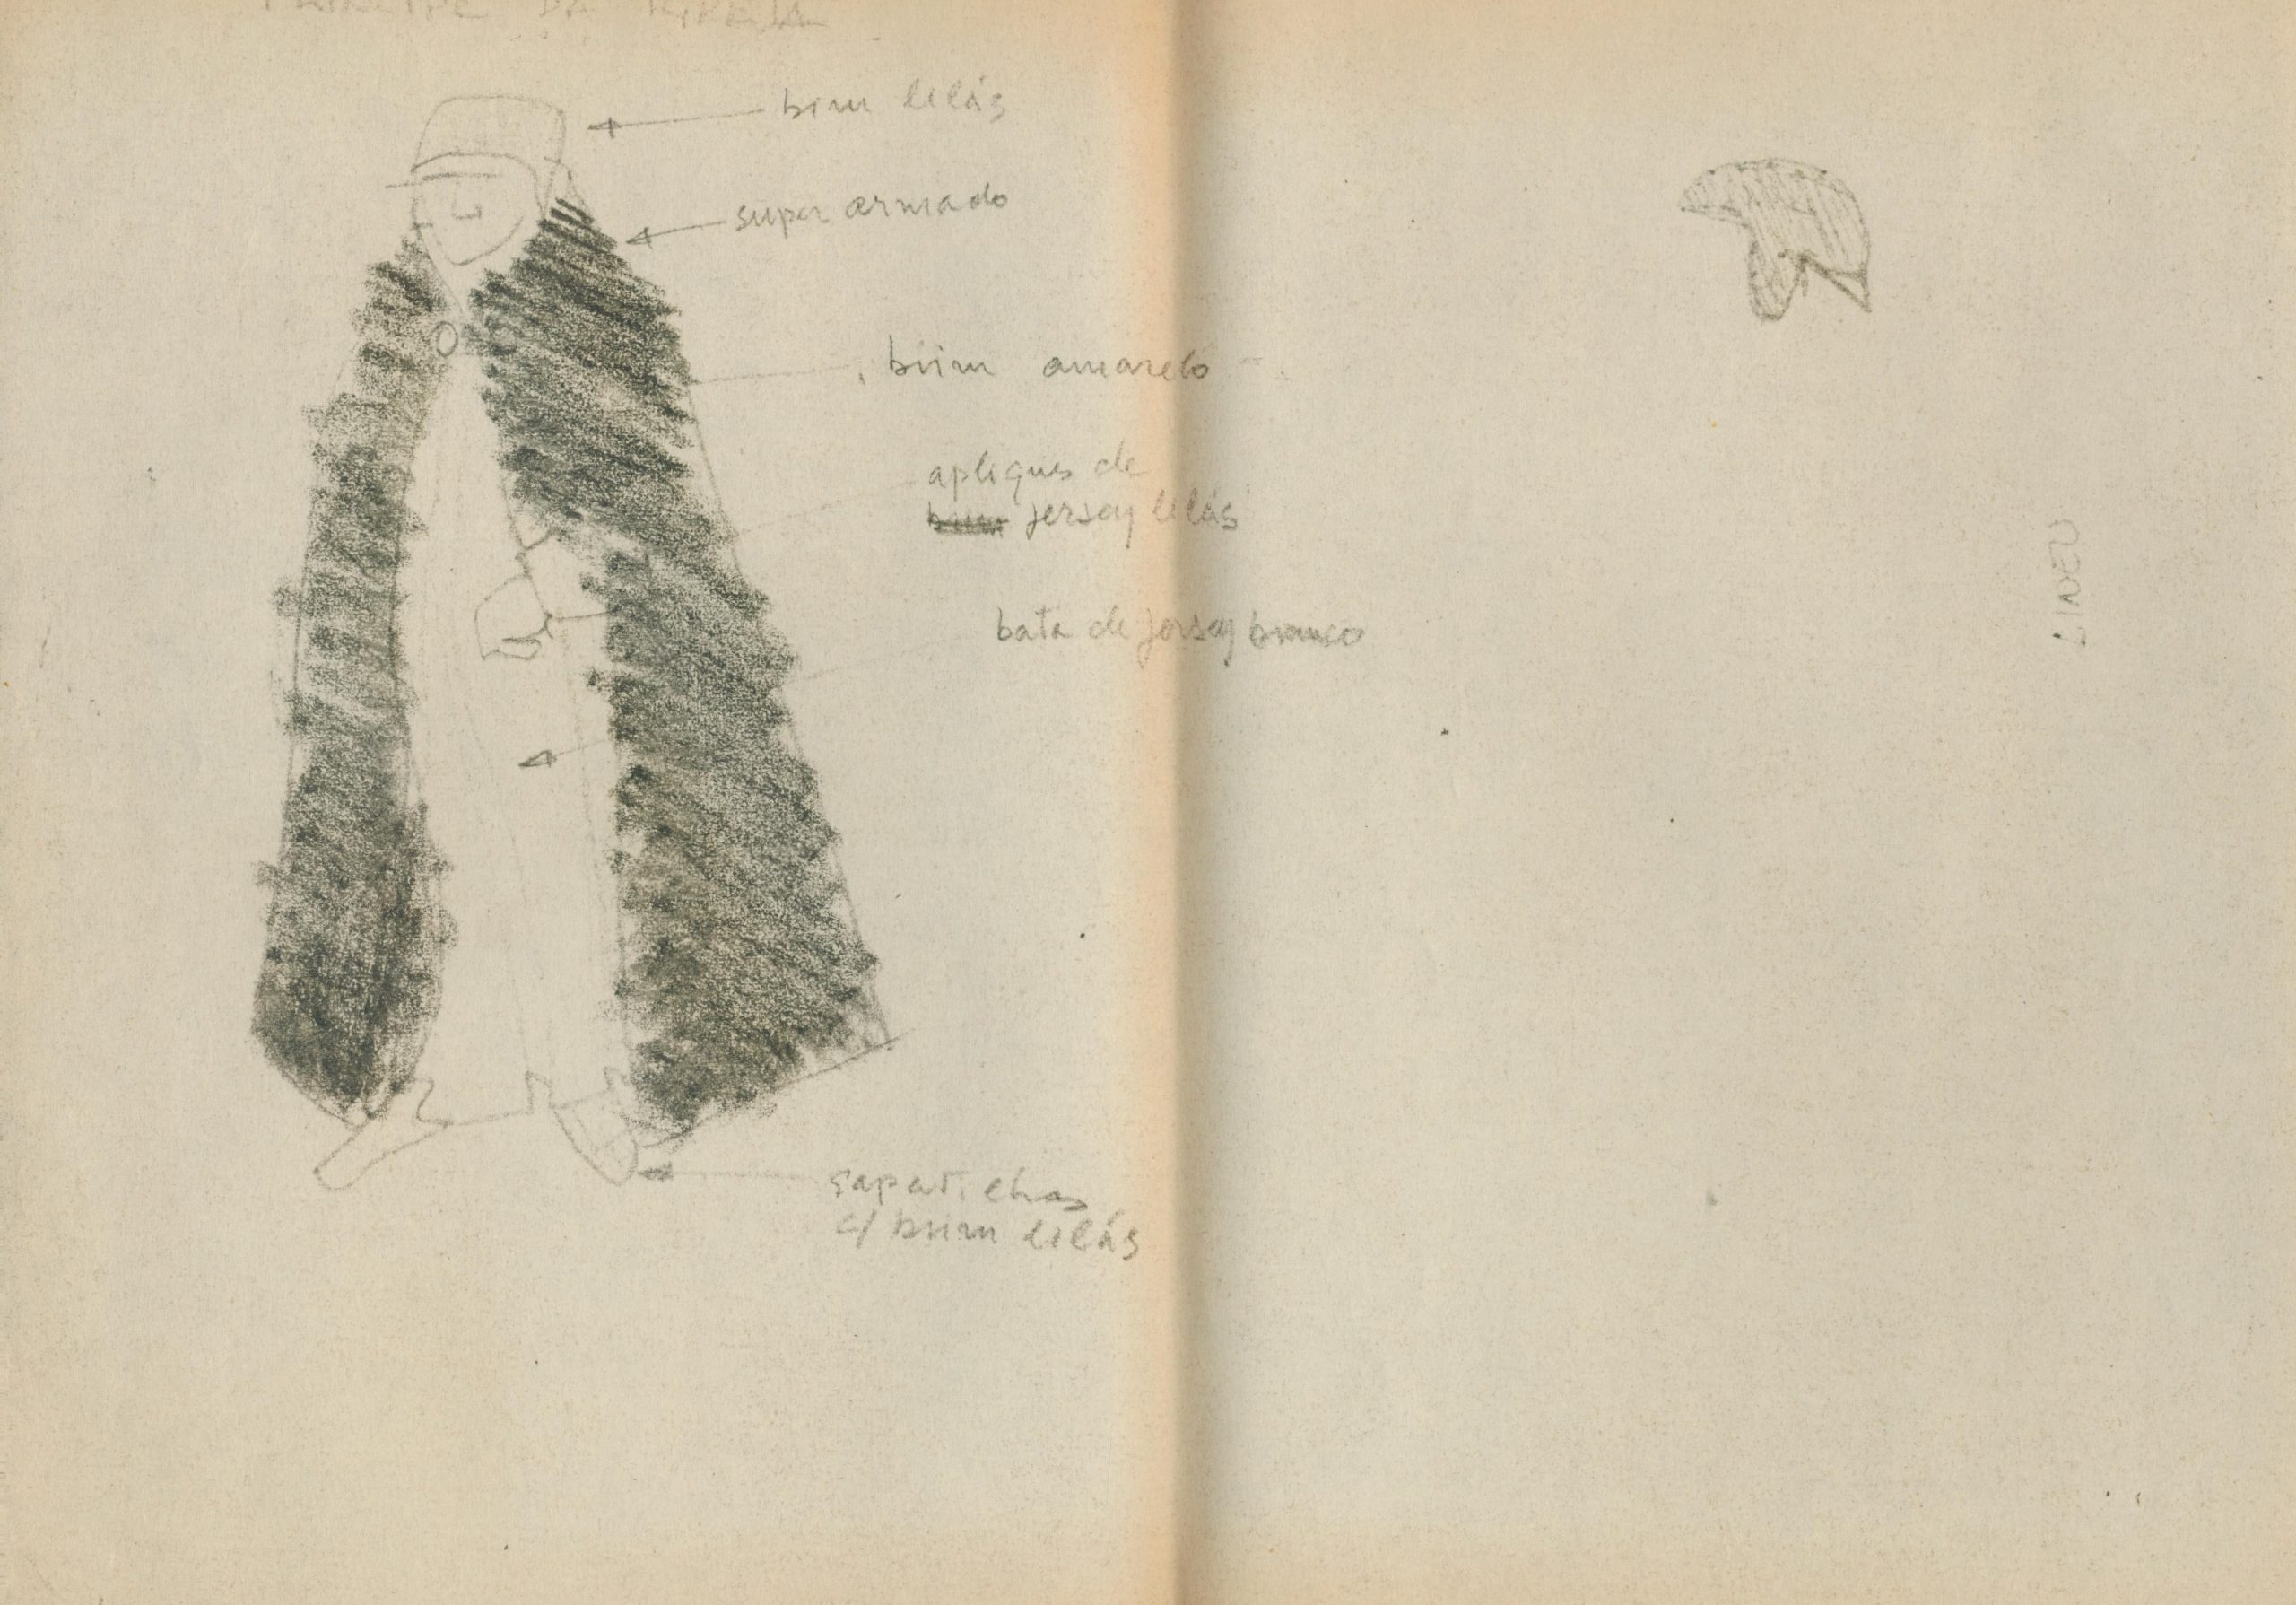 PRINCIPE DA
brim lilás
super armado
brim amarelo
apliques de
jersey lilás
bata de jersey branco
sapatilhas
c/ brim lilás
LINEU